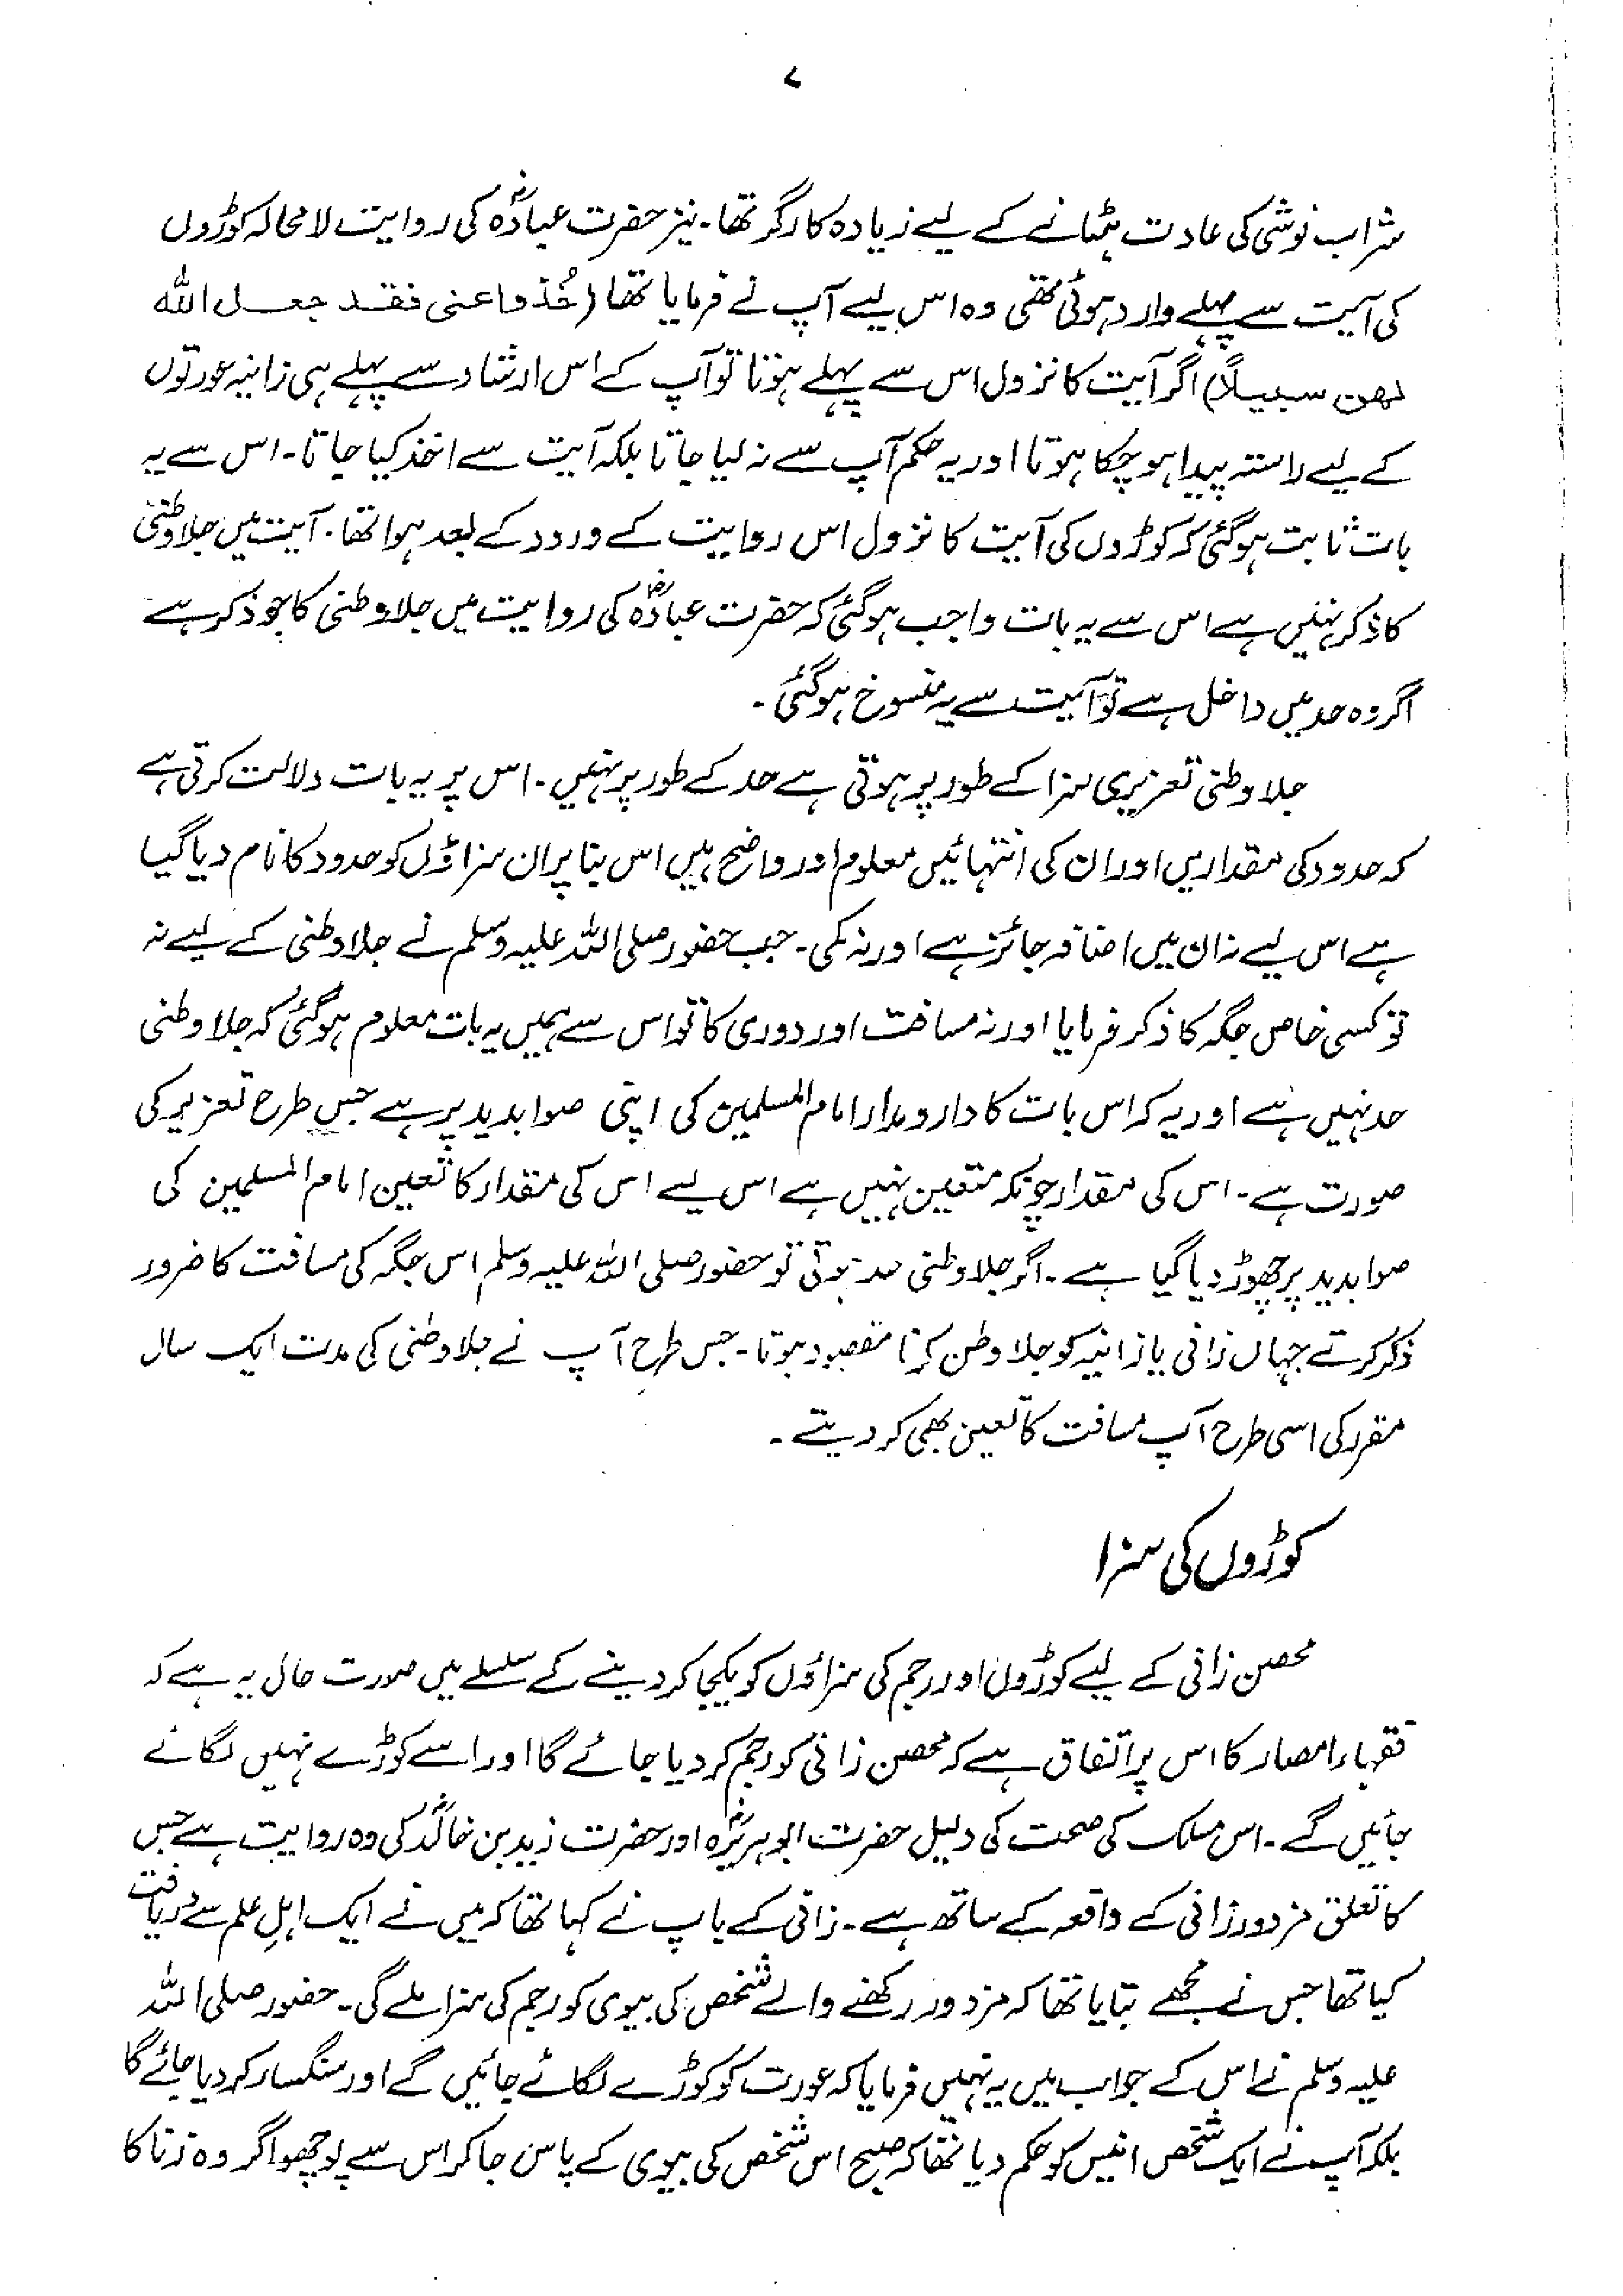 ۷
شراب نوشی کی عادت ہٹانے کے لیے زیادہ کارگر تھا۔ نیز حضرت عبادہؓ کی روایت لامحالہ کوڑوں
کی آیت سے پہلے وارد ہوئی تھی وہ اس لیے آپ نے فرمایا تھا (خُذوا عنی فقد جعل اللہ
لھن سبیلاً) اگر آیت کا نزول اس سے پہلے ہوتا تو آپ کے اس ارشاد سے پہلے ہی زانیہ عورتوں
کے لیے راستہ پیدا ہو چکا ہوتا اور یہ حکم آپ سے نہ لیا جاتا بلکہ آیت سے اخذ کیا جاتا۔ اس سے یہ
بات ثابت ہوگئی کہ کوڑوں کی آیت کا نزول اس روایت کے ورود کے بعد ہوا تھا۔ آیت میں جلاوطنی
کا ذکر نہیں ہے اس سے یہ بات واجب ہوگئی کہ حضرت عبادہؓ کی روایت میں جلاوطنی کا جو ذکر ہے
اگر وہ حد میں داخل ہے تو آیت سے یہ منسوخ ہوگئی۔
جلاوطنی تعزیری سزا کے طور پر ہوتی ہے حد کے طور پر نہیں۔ اس پر یہ بات دلالت کرتی ہے
کہ حدود کی مقداریں اور ان کی انتہائیں معلوم اور واضح ہیں اس بنا پر ان سزاؤں کو حدود کا نام دیا گیا
ہے اس لیے نہ ان میں اضافہ جائز ہے اور نہ کمی۔ جب حضور صلی اللہ علیہ وسلم نے جلاوطنی کے لیے نہ
تو کسی خاص جگہ کا ذکر فرمایا اور نہ مسافت اور دوری کا تو اس سے ہمیں یہ بات معلوم ہوگئی کہ جلاوطنی
حد نہیں ہے اور یہ کہ اس بات کا دارومدار امام المسلمین کی اپنی صوابدید پر ہے جس طرح تعزیر کی
صورت ہے۔ اس کی مقدار چونکہ متعین نہیں ہے اس لیے اس کی مقدار کا تعین امام المسلمین کی
صوابدید پر چھوڑ دیا گیا ہے۔ اگر جلاوطنی حد ہوتی تو حضور صلی اللہ علیہ وسلم اس جگہ کی مسافت کا ضرور
ذکر کرتے جہاں زانی یا زانیہ کو جلاوطن کرنا مقصود ہوتا۔ جس طرح آپ نے جلاوطنی کی مدت ایک سال
مقرر کی اسی طرح آپ مسافت کا تعین بھی کر دیتے۔
کوڑوں کی سزا
محصن زانی کے لیے کوڑوں اور رجم کی سزاؤں کو یکجا کر دینے کے سلسلے میں صورت حال یہ ہے کہ
فقہاء امصار کا اس پر اتفاق ہے کہ محصن زانی کو رجم کر دیا جائے گا اور اسے کوڑے نہیں لگائے
جائیں گے۔ اس مسلک کی صحت کی دلیل حضرت ابوہریرہؓ اور حضرت زید بن خالدؓ کی وہ روایت ہے جس
کا تعلق مزدور زانی کے واقعہ کے ساتھ ہے۔ زانی کے باپ نے کہا تھا کہ میں نے ایک اہلِ علم سے دریافت
کیا تھا جس نے مجھے بتایا تھا کہ مزدور رکھنے والے شخص کی بیوی کو رجم کی سزا ملے گی۔ حضور صلی اللہ
علیہ وسلم نے اس کے جواب میں یہ نہیں فرمایا کہ عورت کو کوڑے لگائے جائیں گے اور سنگسار کر دیا جائے گا
بلکہ آپ نے ایک شخص انیس کو حکم دیا تھا کہ صبح اس شخص کی بیوی کے پاس جا کر اس سے پوچھو اگر وہ زنا کا